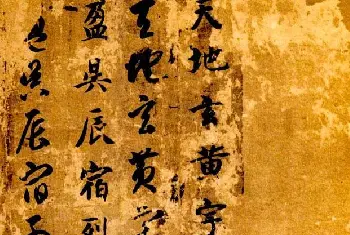 天地玄黄宇
天地玄黄
盈昃辰宿列
昃辰宿